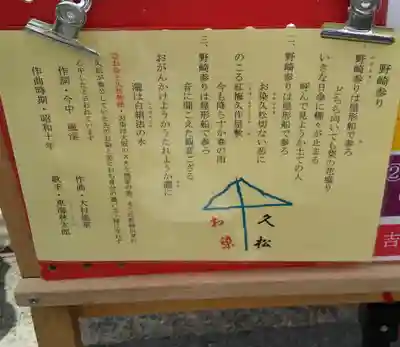 野崎参り
野崎参りは屋形船で参ろ
どちら向いても菜の花盛り
いきな日傘に蝶々が止まる
呼んで見ようか土手の人
二、野崎参りは屋形船で参ろ
お染久松切ない恋に
のこる紅梅久作屋敷
今も降らすか春の雨
三、野崎参りは屋形船で参ろ
音に聞こえた観音ござる
おがんかけようかうたれようか滝に
滝は白絹法の水
作詞・今中 楓渓
作曲・大村能章
作曲時期・昭和十年
歌手・東海林太郎
久松
お染
②
吉